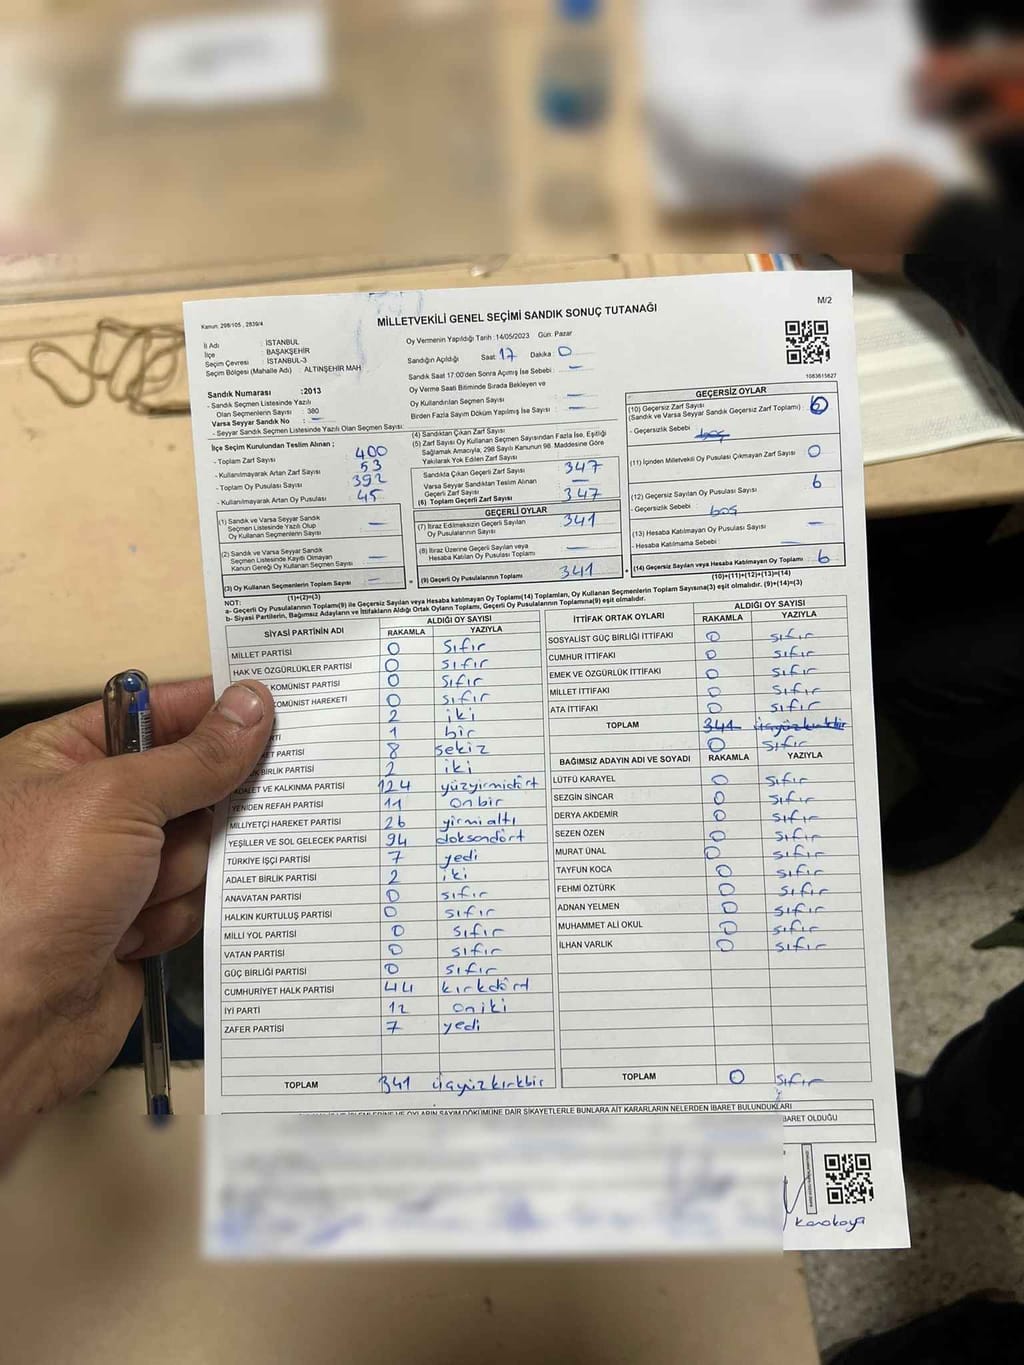 M/2
Kanun: 298/105 , 2839/4
MİLLETVEKİLİ GENEL SEÇİMİ SANDIK SONUÇ TUTANAĞI
İl Adı : İSTANBUL
İlçe : BAŞAKŞEHİR
Seçim Çevresi : İSTANBUL-3
Seçim Bölgesi (Mahalle Adı) : ALTINŞEHİR MAH
Sandık Numarası :2013
- Sandık Seçmen Listesinde Yazılı
Olan Seçmenlerin Sayısı : 380
Varsa Seyyar Sandık No : —
- Seyyar Sandık Seçmen Listesinde Yazılı Olan Seçmen Sayısı:
İlçe Seçim Kurulundan Teslim Alınan ;
- Toplam Zarf Sayısı : 400
- Kullanılmayarak Artan Zarf Sayısı : 53
- Toplam Oy Pusulası Sayısı : 392
- Kullanılmayarak Artan Oy Pusulası : 45
(1) Sandık ve Varsa Seyyar Sandık
Seçmen Listesinde Yazılı Olup
Oy Kullanan Seçmenlerin Sayısı —
(2) Sandık ve Varsa Seyyar Sandık
Seçmen Listesinde Kaydı Olmayan
Kanun Gereği Oy Kullanan Seçmen Sayısı —
(3) Oy Kullanan Seçmenlerin Toplam Sayısı —
(1)+(2)=(3)
Oy Vermenin Yapıldığı Tarih :14/05/2023 Gün: Pazar
Sandığın Açıldığı Saat: 17 Dakika 0
Sandık Saat 17:00'den Sonra Açılmış İse Sebebi : —
Oy Verme Saati Bitiminde Sırada Bekleyen ve
Oy Kullandırılan Seçmen Sayısı : —
Birden Fazla Sayım Döküm Yapılmış İse Sayısı : —
(4) Sandıktan Çıkan Zarf Sayısı
(5) Zarf Sayısı Oy Kullanan Seçmen Sayısından Fazla İse, Eşitliği
Sağlamak Amacıyla, 298 Sayılı Kanunun 98. Maddesine Göre
Yakılarak Yok Edilen Zarf Sayısı
Sandıkta Çıkan Geçerli Zarf Sayısı 347
Varsa Seyyar Sandıktan Teslim Alınan
Geçerli Zarf Sayısı —
(6) Toplam Geçerli Zarf Sayısı 347
GEÇERLİ OYLAR
(7) İtiraz Edilmeksizin Geçerli Sayılan
Oy Pusulalarının Sayısı 341
(8) İtiraz Üzerine Geçerli Sayılan veya
Hesaba Katılan Oy Pusulası Toplamı —
(9) Geçerli Oy Pusulalarının Toplamı 341
1083615627
GEÇERSİZ OYLAR
(10) Geçersiz Zarf Sayısı
(Sandık ve Varsa Seyyar Sandık Geçersiz Zarf Toplamı) :
- Geçersizlik Sebebi boş
(11) İçinden Milletvekili Oy Pusulası Çıkmayan Zarf Sayısı 0
(12) Geçersiz Sayılan Oy Pusulası Sayısı 6
- Geçersizlik Sebebi boş
(13) Hesaba Katılmayan Oy Pusulası Sayısı —
- Hesaba Katılmama Sebebi : —
(14) Geçersiz Sayılan veya Hesaba Katılmayan Oy Toplamı 6
(10)+(11)+(12)+(13)=(14)
NOT:
a- Geçerli Oy Pusulalarının Toplamı(9) ile Geçersiz Sayılan veya Hesaba Katılmayan Oy Toplamı(14) Toplamları, Oy Kullanan Seçmenlerin Toplam Sayısına(3) eşit olmalıdır. (9)+(14)=(3)
b- Siyasi Partilerin, Bağımsız Adayların ve İttifakların Aldığı Ortak Oyların Toplamı, Geçerli Oy Pusulalarının Toplamına(9) eşit olmalıdır.
SİYASİ PARTİNİN ADI ALDIĞI OY SAYISI
RAKAMLA YAZIYLA
MİLLET PARTİSİ 0 sıfır
HAK VE ÖZGÜRLÜKLER PARTİSİ 0 sıfır
KOMÜNİST PARTİSİ 0 sıfır
KOMÜNİST HAREKETİ 0 sıfır
2 iki
1 bir
ET PARTİSİ 8 sekiz
BİRLİK PARTİSİ 2 iki
ADALET VE KALKINMA PARTİSİ 124 yüzyirmidört
YENİDEN REFAH PARTİSİ 11 onbir
MİLLİYETÇİ HAREKET PARTİSİ 26 yirmialtı
YEŞİLLER VE SOL GELECEK PARTİSİ 94 doksandört
TÜRKİYE İŞÇİ PARTİSİ 7 yedi
ADALET BİRLİK PARTİSİ 2 iki
ANAVATAN PARTİSİ 0 sıfır
HALKIN KURTULUŞ PARTİSİ 0 sıfır
MİLLİ YOL PARTİSİ 0 sıfır
VATAN PARTİSİ 0 sıfır
GÜÇ BİRLİĞİ PARTİSİ 0 sıfır
CUMHURİYET HALK PARTİSİ 44 kırkdört
İYİ PARTİ 12 oniki
ZAFER PARTİSİ 7 yedi
TOPLAM 341 üçyüzkırkbir
İTTİFAK ORTAK OYLARI ALDIĞI OY SAYISI
RAKAMLA YAZIYLA
SOSYALİST GÜÇ BİRLİĞİ İTTİFAKI 0 sıfır
CUMHUR İTTİFAKI 0 sıfır
EMEK VE ÖZGÜRLÜK İTTİFAKI 0 sıfır
MİLLET İTTİFAKI 0 sıfır
ATA İTTİFAKI 0 sıfır
TOPLAM 341 üçyüzkırkbir
0 sıfır
BAĞIMSIZ ADAYIN ADI VE SOYADI RAKAMLA YAZIYLA
LÜTFÜ KARAYEL 0 sıfır
SEZGİN SİNCAR 0 sıfır
DERYA AKDEMİR 0 sıfır
SEZEN ÖZEN 0 sıfır
MURAT ÜNAL 0 sıfır
TAYFUN KOCA 0 sıfır
FEHMİ ÖZTÜRK 0 sıfır
ADNAN YELMEN 0 sıfır
MUHAMMET ALİ OKUL 0 sıfır
İLHAN VARLIK 0 sıfır
TOPLAM 0 sıfır
İŞLEMLERİNE VE OYLARIN SAYIM DÖKÜMÜNE DAİR ŞİKAYETLERLE BUNLARA AİT KARARLARIN NELERDEN İBARET BULUNDUKLARI
BARET OLDUĞU
Karakaya